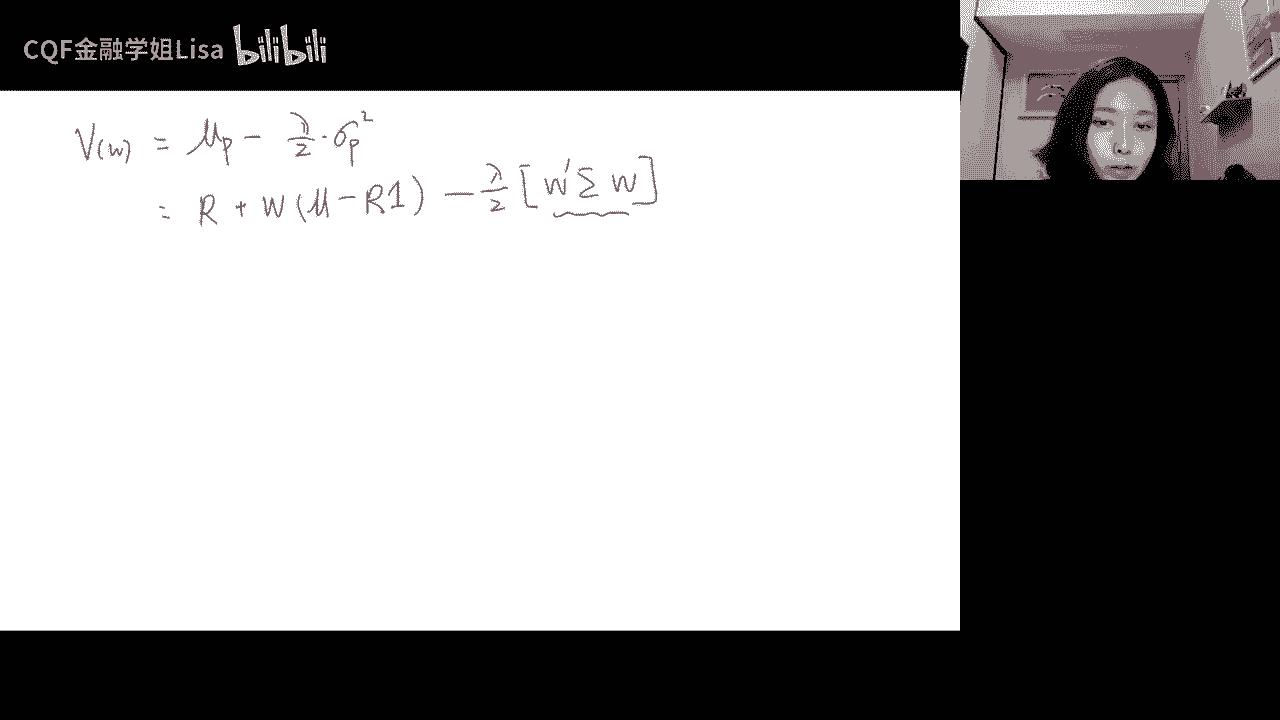 CQF金融学姐Lisa bilibili
V(w) = μp − λ/2 · σp²
= R + W(μ − R1) − λ/2 [w′Σw]